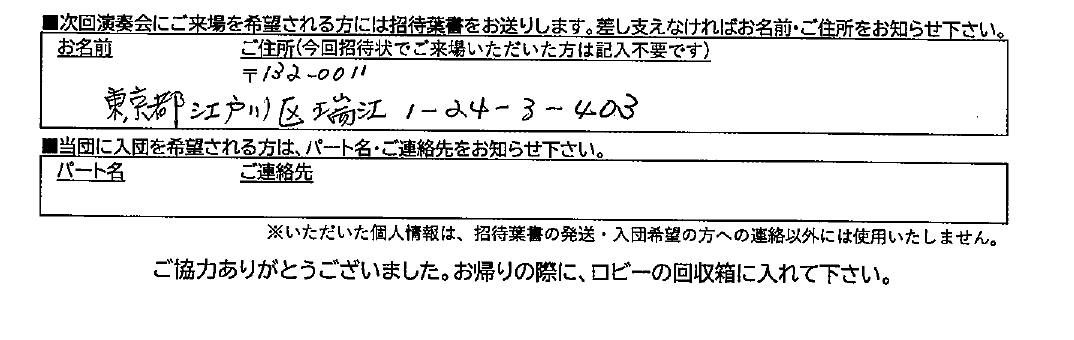 ■次回演奏会にご来場を希望される方には招待葉書をお送りします。差し支えなければお名前・ご住所をお知らせ下さい。
お名前 ご住所(今回招待状でご来場いただいた方は記入不要です)
〒132-0011
東京都江戸川区瑞江 1-24-3-403
■当団に入団を希望される方は、パート名・ご連絡先をお知らせ下さい。
パート名 ご連絡先
※いただいた個人情報は、招待葉書の発送・入団希望の方への連絡以外には使用いたしません。
ご協力ありがとうございました。お帰りの際に、ロビーの回収箱に入れて下さい。